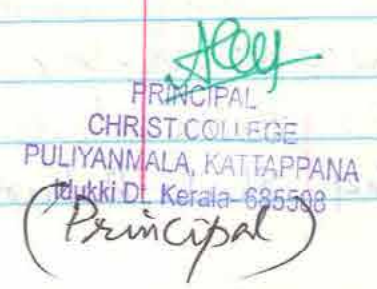 PRINCIPAL
CHRIST COLLEGE
PULIYANMALA, KATTAPPANA
Idukki Dt. Kerala-685508
(Principal)